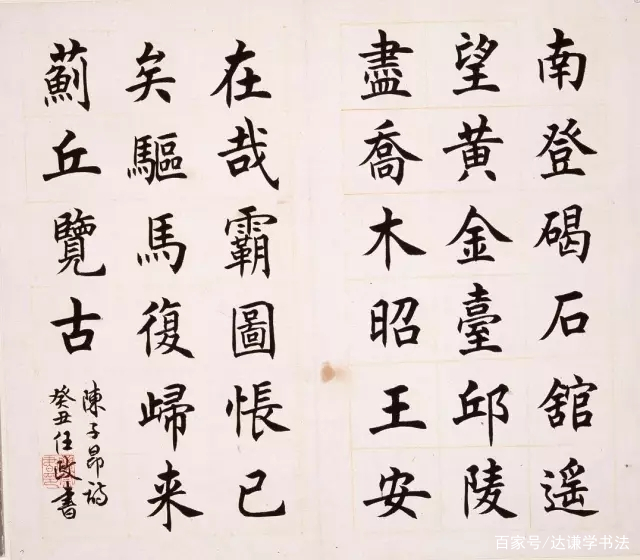 南登碣石舘遥
望黄金臺邱陵
盡喬木昭王安
在哉霸圖悵已
矣驅馬復歸来
薊丘覽古
陳子昂詩
癸丑任政書
百家号/达谦学书法